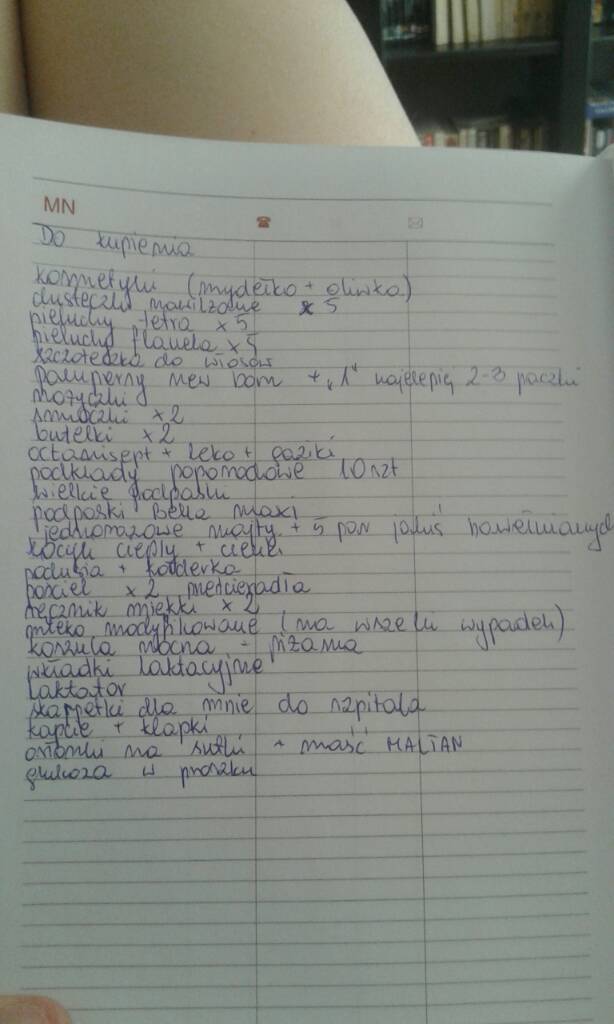 MN
Do kupienia
kosmetyki (mydełko + oliwka)
chusteczki nawilżane x 5
pieluchy tetra x 5
pieluchy flanela x 5
szczoteczka do włosów
pampersy new born + „1" najlepiej 2-3 paczki
nożyczki
smoczki x 2
butelki x 2
octanisept + leko + gaziki
podkłady poporodowe 10 szt
wielkie podpaski
podpaski Bella maxi
jednorazowe majty + 5 par jakiś bawełnianych
kocyk ciepły + cienki
podusia + kołderka
pościel x 2 prześcieradła
ręcznik miękki x 2
mleko modyfikowane (na wszelki wypadek)
koszula nocna - piżama
wkładki laktacyjne
laktator
skarpetki dla mnie do szpitala
kapcie + klapki
osłonki na sutki + maść MALTAN
glukoza w proszku